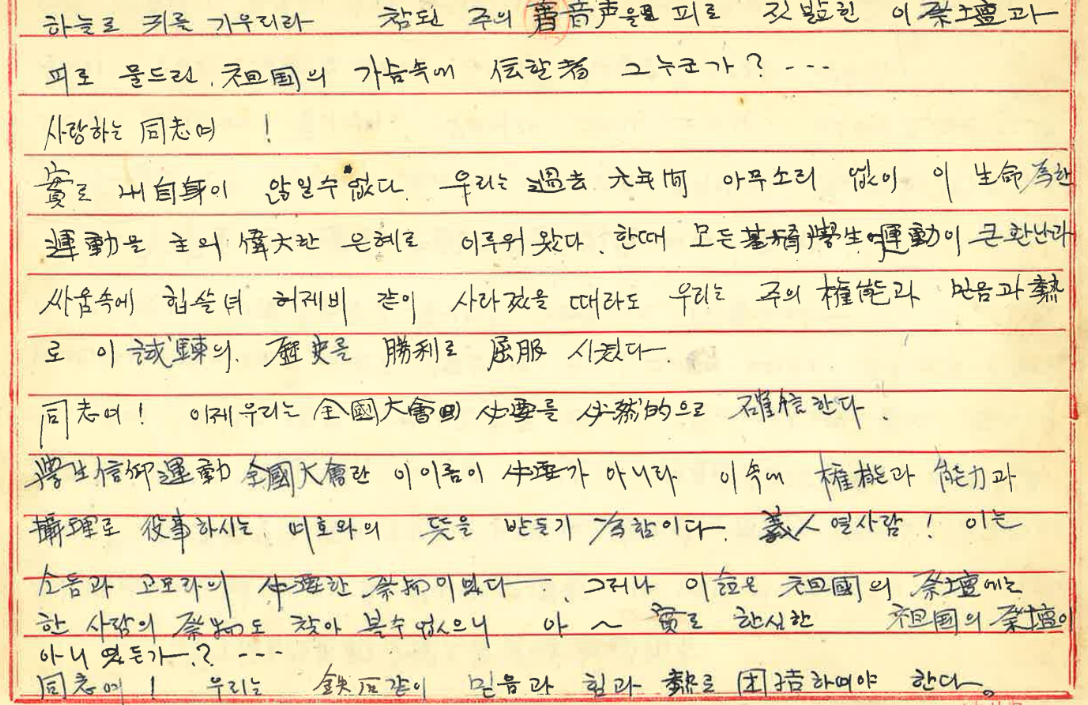 하늘로 귀를 기우리라 참된 주의 音声을 피로 짓밟힌 이 祭壇과
피로 물드린 祖國의 가슴속에 伝할者 그누군가? ---
사랑하는 同志여 !
實로 내自身이 않일수 없다 우리는 過去 六年間 아무소리 없이 이 生命 爲한
運動을 主의 偉大한 은혜로 이루워 왔다. 한때 모든 基督學生運動이 큰 환난과
싸움속에 힙쓸녀 허제비 같이 사라젔을 때라도 우리는 주의 權能과 믿음과 熱
로 이 試鍊의 歷史를 勝利로 屈服 시켰다
同志여! 이제 우리는 全國大會의 必要를 必然的으로 確信한다
學生信仰運動 全國大會란 이 이름이 必要가 아니라 이속에 權能과 能力과
攝理로 役事하시는 여호와의 뜻을 받들기 爲함이다. 義人 열사람! 이는
소돔과 고모라의 必要한 祭物이였다. 그러나 이 祖國의 祭壇에는
한 사람의 祭物도 찾아 볼수 없으니 아~ 實로 한심한 祖國의 祭壇이
아니 였든가? ---
同志여! 우리는 鉄石같이 믿음과 힘과 熱로 団結하여야 한다。